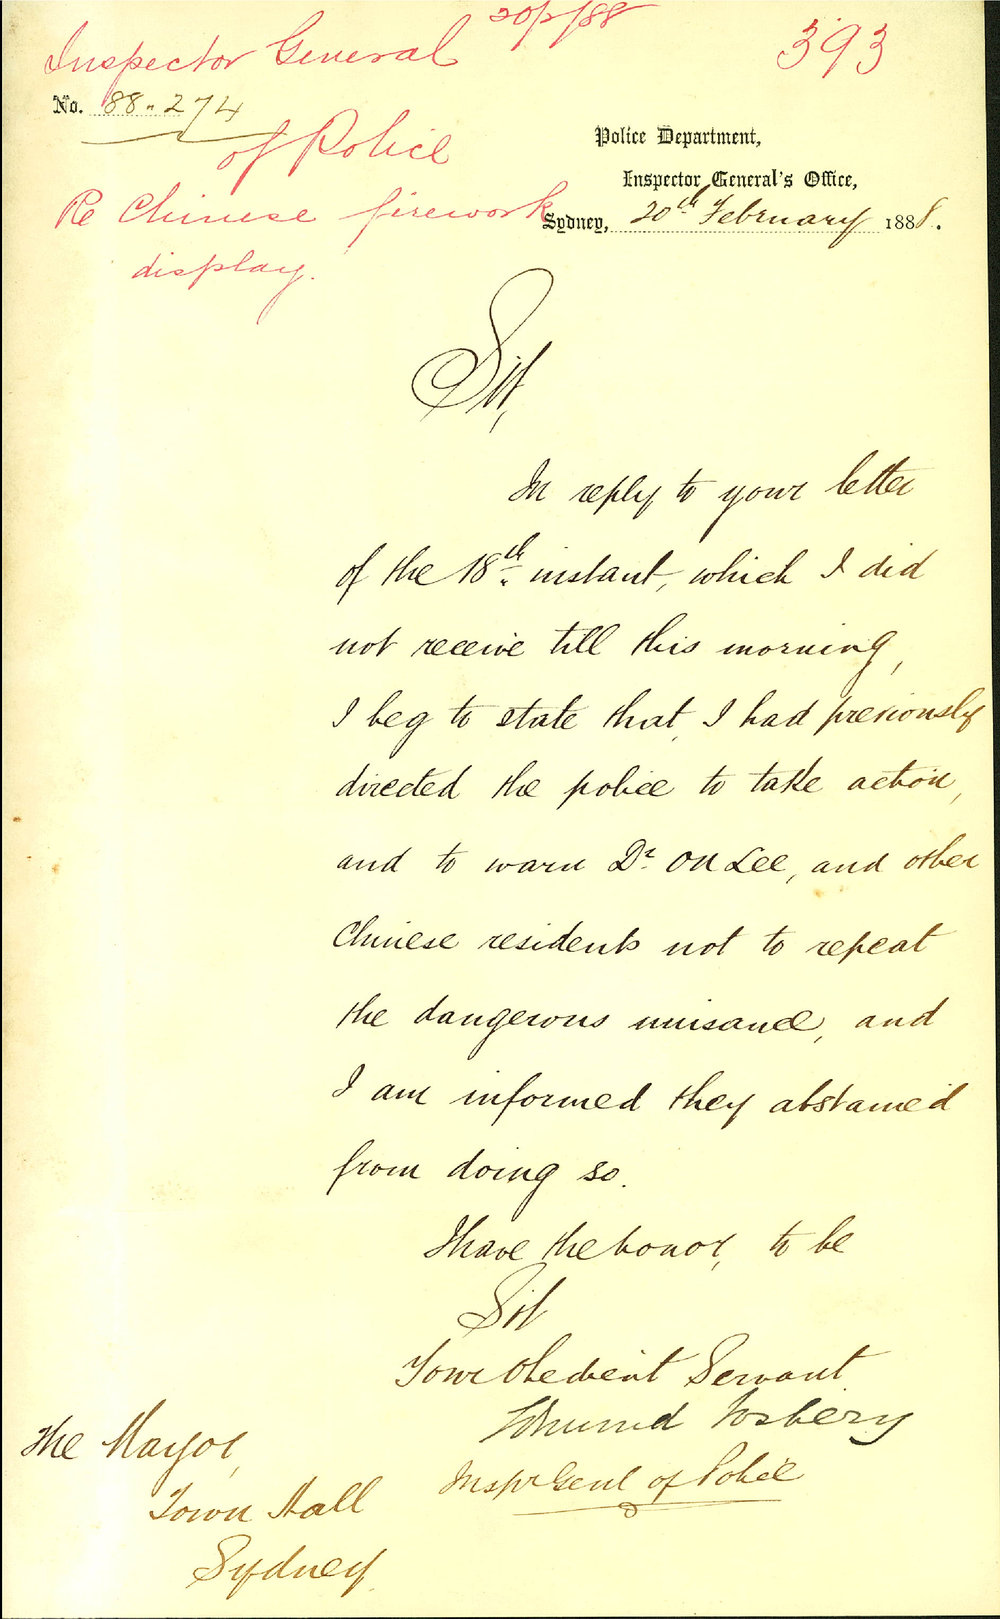 Inspector General 20/2/88
393
No. 88-274
of Police
Re Chinese firework
display.
Police Department,
Inspector General's Office,
Sydney, 20th February 1888.
Sir,
In reply to your letter
of the 18th instant, which I did
not receive till this morning,
I beg to state that, I had previously
directed the police to take action,
and to warn Dr. On Lee, and other
Chinese residents not to repeat
the dangerous nuisance, and
I am informed they abstained
from doing so.
I have the honor, to be
Sir
Your Obedient Servant
Edmund Fosbery
Inspr Genl of Police
The Mayor,
Town Hall
Sydney